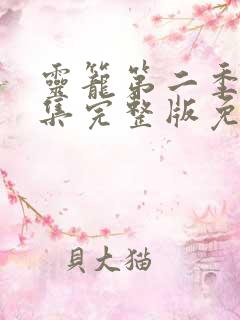 靈籠第二季
集完整版免
貝大猫